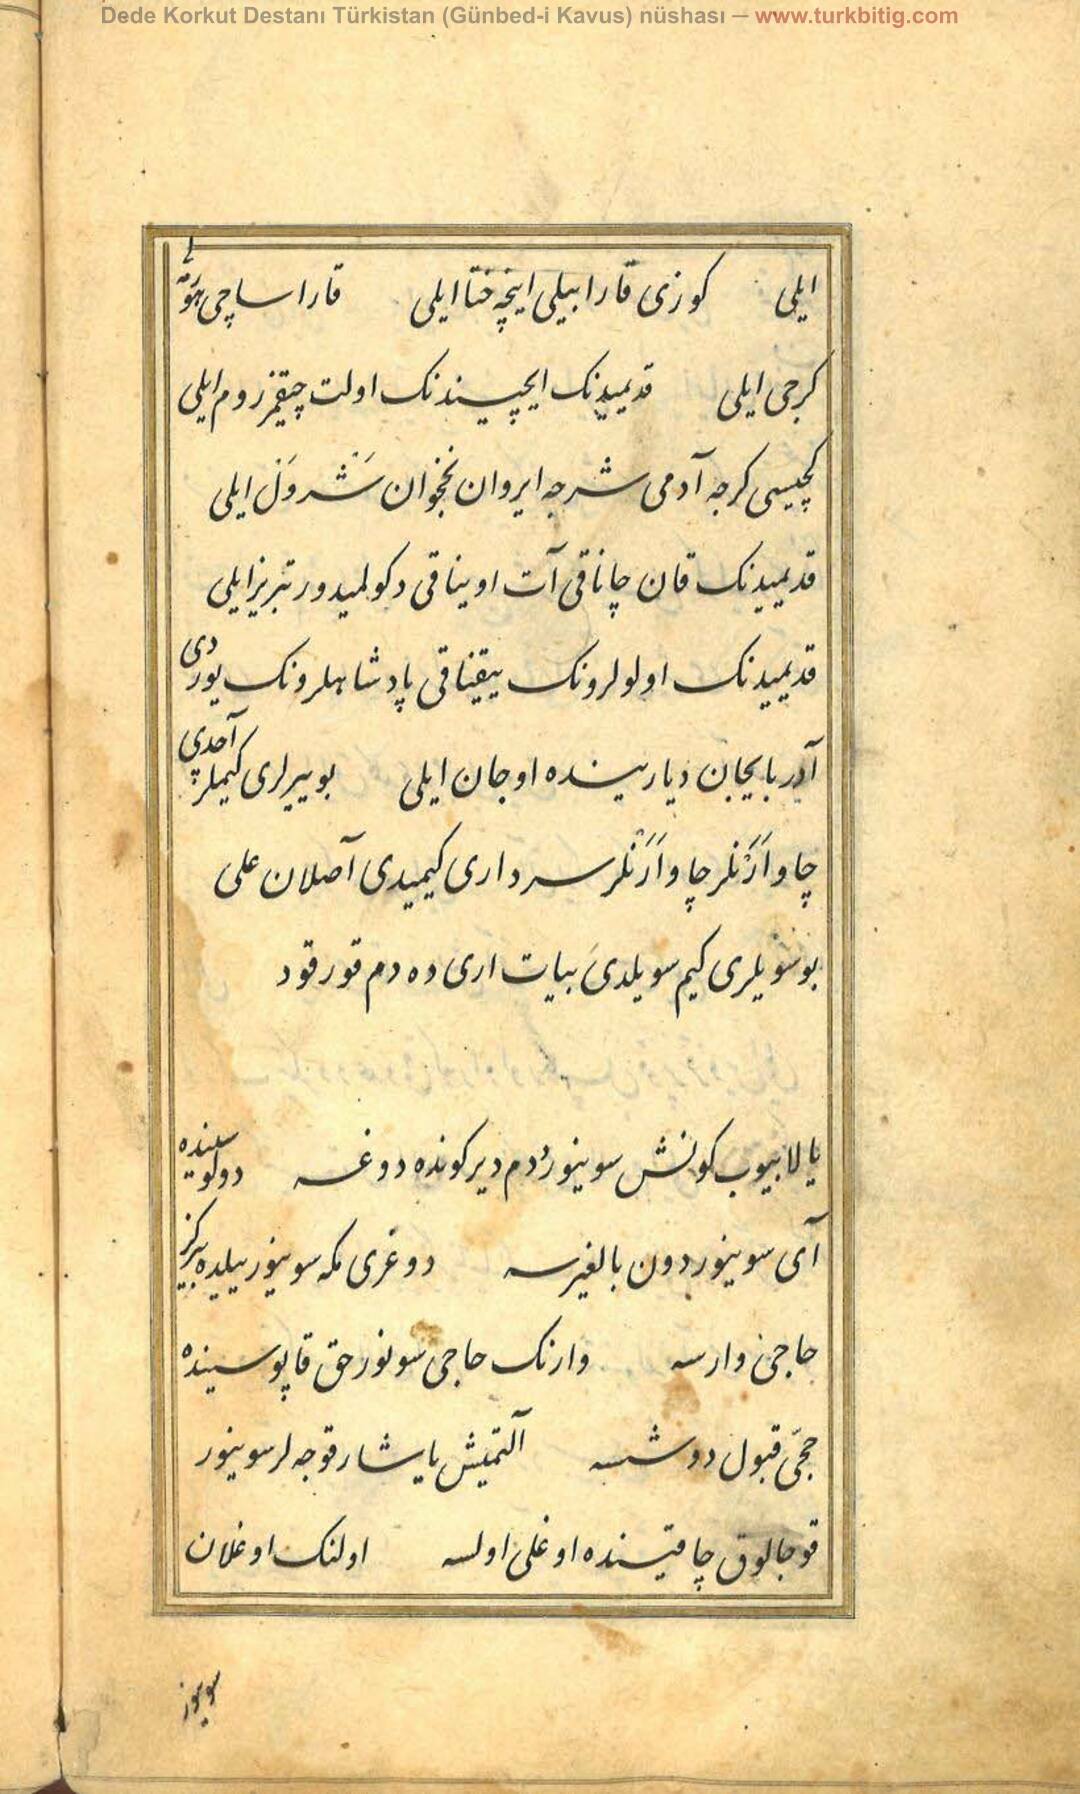 Dede Korkut Destanı Türkistan (Günbed-i Kavus) nüshası — www.turkbitig.com
ایلی کوزی قارا بیلی اینچه ختا ایلی قارا ساچی
کرجی ایلی قدیمیدنک ایچیسیندنک اولت چیقمز روم ایلی
کچیسی کرجه آدمی شرجه ایروان نخجوان شرول ایلی
قدیمیدنک قان چاناقی آت اویناقی دکولمیدور تبریز ایلی
قدیمیدنک اولولرونک ییقیناقی پادشاهلرونک یوردی
آذربایجان دیاریسنده اوجان ایلی بو ییرلری کیملر آچدی
چاو اَرَنلر چاو اَرَنلر سرداری کیمیدی آصلان علی
بو سویلری کیم سویلدی بیات اری ده دم قورقود
یالابیوب کونش سوینور دم دیر کونده دوغسه دولوسینده
آی سوینور دون بالغیرسه دوغری مکه سوینور ییلیده بیرکز
حاجی وارسه وارنک حاجی سونور حق قاپوسینده
حجی قبول دوشسه آلتمیش یاشار قوجه لر سوینور
قوجالوق چاقیسنده اوغلی اولسه اولنک اوغلان